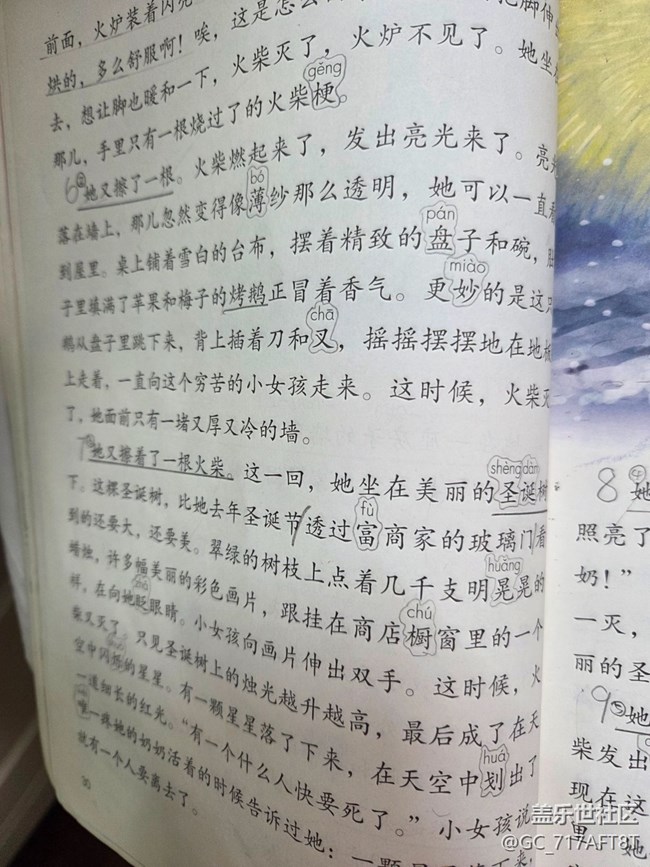 前面，火炉装着闪
烘的，多么舒服啊！唉，这是怎么
去，想让脚也暖和一下，火柴灭了，火炉不见了。她坐
gěng
那儿，手里只有一根烧过了的火柴梗。
6 她又擦了一根。火柴燃起来了，发出亮光来了。亮
bó
落在墙上，那儿忽然变得像薄纱那么透明，她可以一直
pán
到屋里。桌上铺着雪白的台布，摆着精致的盘子和碗，
miào
子里填满了苹果和梅子的烤鹅正冒着香气。更妙的是这
chā
鹅从盘子里跳下来，背上插着刀和叉，摇摇摆摆地在地
上走着，一直向这个穷苦的小女孩走来。这时候，火柴灭
了，她面前只有一堵又厚又冷的墙。
shèng dàn
7 她又擦着了一根火柴。这一回，她坐在美丽的圣诞树
fù
下。这棵圣诞树，比她去年圣诞节透过富商家的玻璃门看
huǎng
到的还要大，还要美。翠绿的树枝上点着几千支明晃晃的
chú
蜡烛，许多幅美丽的彩色画片，跟挂在商店橱窗里的一个
样，在向她眨眼睛。小女孩向画片伸出双手。这时候，火
柴又灭了。只见圣诞树上的烛光越升越高，最后成了在天
空中闪烁的星星。有一颗星星落了下来，在天空中划出了
huá
一道细长的红光。“有一个什么人快要死了。”小女孩说
唯一疼她的奶奶活着的时候告诉过她：一颗
就有一个人要离去了。
8 她
照亮了
奶！”
一灭，
丽的圣
9 她
柴发出
现在这
里 她
盖乐世社区
@GC_717AFT8T